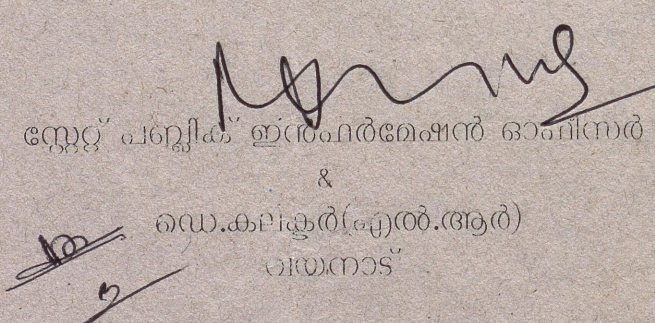 സ്റ്റേറ്റ് പബ്ലിക് ഇൻഫർമേഷൻ ഓഫീസർ
&
ഡെ.കലക്ടർ(എൽ.ആർ)
വയനാട്